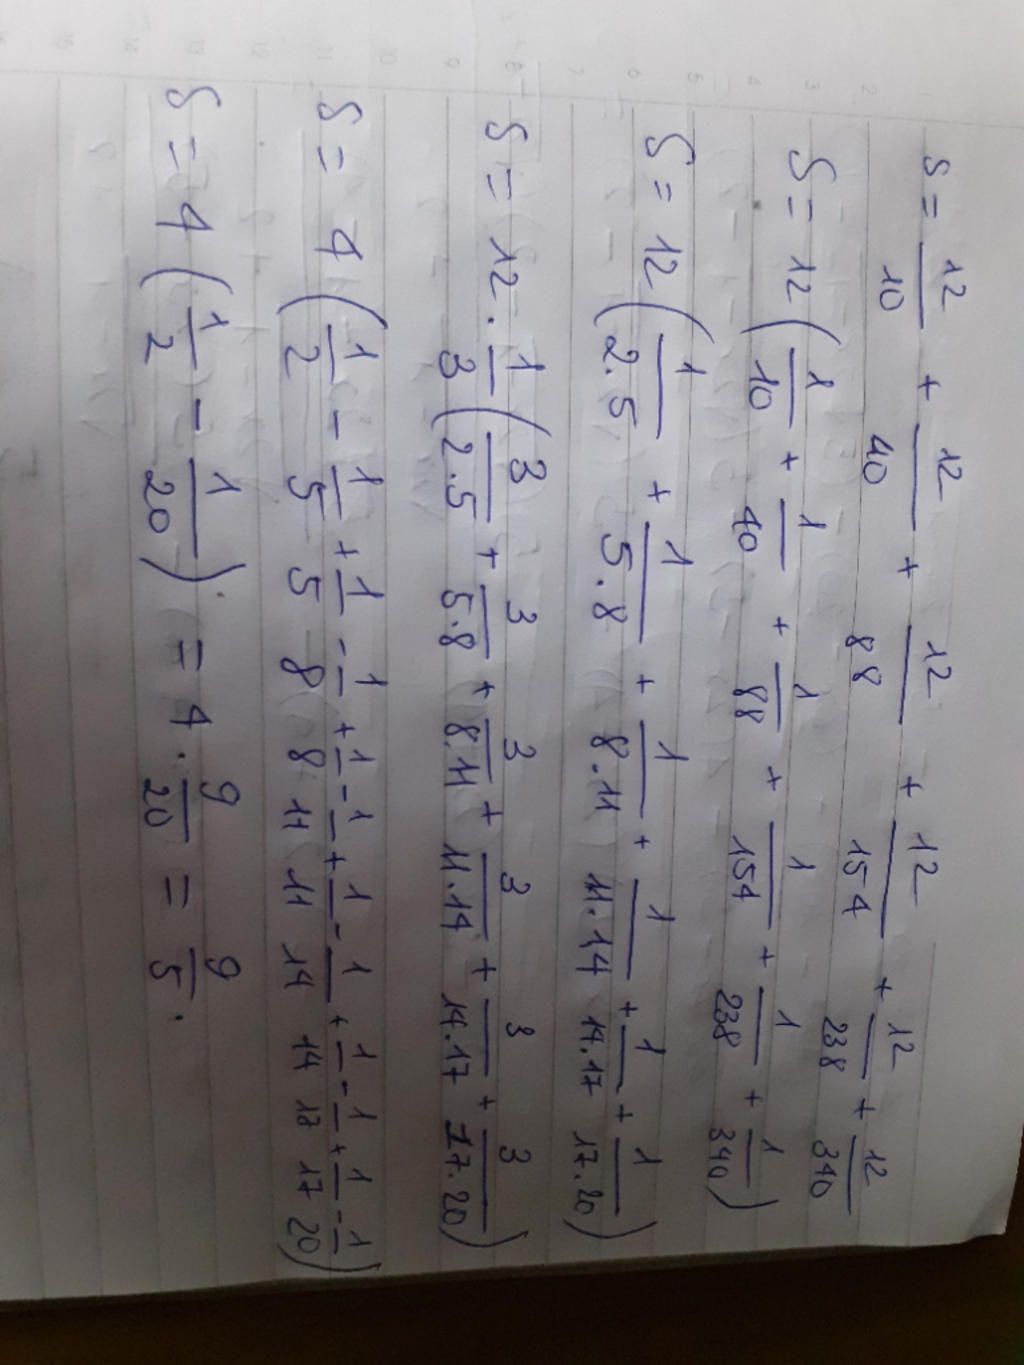 S = 12/10 + 12/40 + 12/88 + 12/154 + 12/238 + 12/340
S = 12 (1/10 + 1/40 + 1/88 + 1/154 + 1/238 + 1/340)
S = 12 (1/2.5 + 1/5.8 + 1/8.11 + 1/11.14 + 1/14.17 + 1/17.20)
S = 12 . 1/3 (3/2.5 + 3/5.8 + 3/8.11 + 3/11.14 + 3/14.17 + 3/17.20)
S = 4 (1/2 - 1/5 + 1/5 - 1/8 + 1/8 - 1/11 + 1/11 - 1/14 + 1/14 - 1/17 + 1/17 - 1/20)
S = 4 (1/2 - 1/20) = 4 . 9/20 = 9/5 .